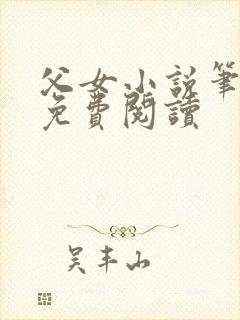 父女小說筆
免費閱讀
吴丰山